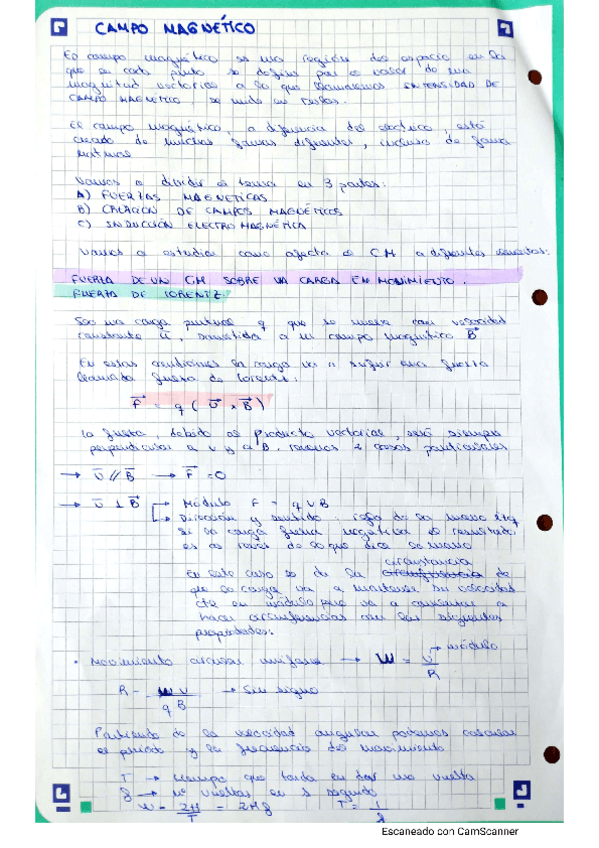 CAMPO MAGNÉTICO
El campo magnético es una región del espacio en la
que en cada punto se define por el valor de una
magnitud vectorial a la que llamaremos INTENSIDAD DE
CAMPO MAGNÉTICO, se mide en teslas.
El campo magnético, a diferencia del eléctrico, está
creado de muchas formas diferentes, incluso de forma
natural
Vamos a dividir el tema en 3 partes:
A) FUERZAS MAGNETICAS
B) CREACIÓN DE CAMPOS MAGNÉTICOS
C) INDUCCIÓN ELECTROMAGNÉTICA
Vamos a estudiar como afecta el CM a diferentes
FUERZA DE UN CM SOBRE UNA CARGA EN MOVIMIENTO.
FUERZA DE LORENTZ
Sea una carga puntual q que se mueve con velocidad
constante v, sometida a un campo magnético B
En estas condiciones la carga va a sufrir una fuerza
llamada fuerza de Lorentz:
F = q ( v × B )
La fuerza, debido al producto vectorial, será siempre
perpendicular a v y a B, 2 casos particulares
→ v // B → F = 0
→ v ⊥ B → Módulo F = q v B
→ Dirección y sentido: regla de la mano izq
si la carga fuera negativa el resultado
es al revés de lo que dice la mano
En este caso se da la circunstancia de
que la carga va a mantener su velocidad
cte en módulo pero va a comenzar a
hacer circunferencias con las siguientes
propiedades:
• Movimiento circular uniforme → W = v/R → módulo
R = m v / q B → Sin signo
Partiendo de la velocidad angular podemos calcular
el período y la frecuencia del movimiento
T → tiempo que tarda en dar una vuelta
f → nº vueltas en 1 segundo
W = 2π/T = 2πf T = 1/f
Escaneado con CamScanner